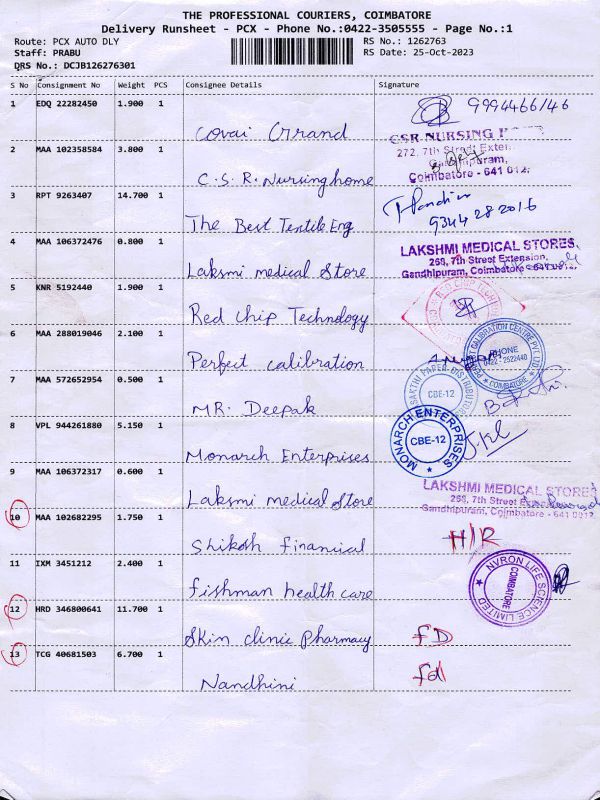 THE PROFESSIONAL COURIERS, COIMBATORE
Delivery Runsheet - PCX - Phone No.:0422-3505555 - Page No.:1
Route: PCX AUTO DLY
RS No.: 1262763
Staff: PRABU
RS Date: 25-Oct-2023
DRS No.: DCJB126276301
S No Consignment No Weight PCS Consignee Details Signature
1 EDQ 22282450 1.900 1
9994466146
Covai Grrand
CSR NURSING
2 MAA 102358584 3.800 1
272, 7th Street Exten.
Gandhipuram,
Coimbatore - 641 012.
C.S.R. Nursing home
3 RPT 9263407 14.700 1
9344282016
The Best Textile Eng
4 MAA 106372476 0.800 1
LAKSHMI MEDICAL STORES,
268, 7th Street Extension,
Gandhipuram, Coimbatore - 641 012.
Laksmi medical Store
5 KNR 5192440 1.900 1
RED CHIP TECHNOLOGY
Red Chip Technology
6 MAA 288019046 2.100 1
CALIBRATION CENTRE PVT. LTD.
PHONE
0422 - 2522440
COIMBATORE
Perfect calibration
7 MAA 572652954 0.500 1
SAKTHI PAPER DISTRIBUTORS
CBE-12
MR. Deepak
8 VPL 944261880 5.150 1
MONARCH ENTERPRISES
CBE-12
Monarch Enterprises
9 MAA 106372317 0.600 1
LAKSHMI MEDICAL STORES
268, 7th Street Extension,
Gandhipuram, Coimbatore - 641 0012.
Laksmi medical Store
10 MAA 102682295 1.750 1
H/R
Shikosh Financial
11 IXM 3451212 2.400 1
NVRON LIFE SCIENCE LIMITED
COIMBATORE
Fishman health care
12 HRD 346800641 11.700 1
Skin clinic Pharmacy
FD
13 TCG 40681503 6.700 1
Fd
Nandhini